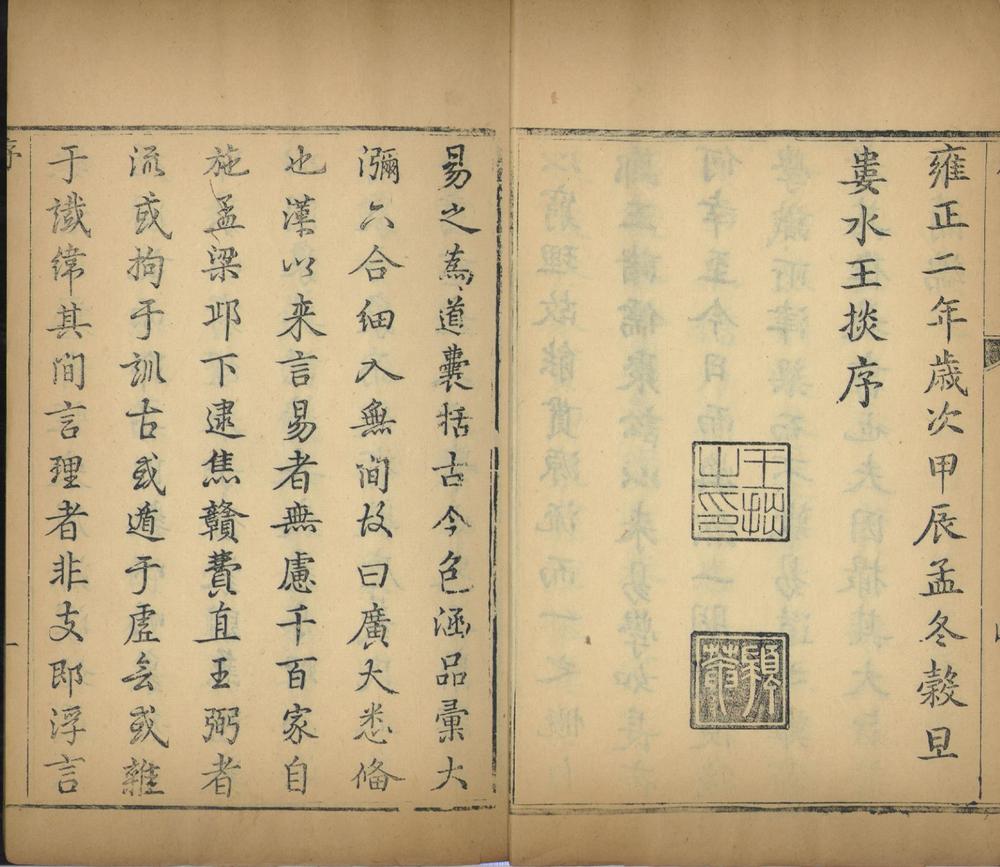 雍正二年歲次甲辰孟冬穀旦
婁水王掞序
王掞之印
顓菴
易之為道囊括古今包涵品彙大
瀰六合細入無間故曰廣大悉備
也漢以来言易者無慮千百家自
施孟梁邱下逮焦贛費直王弼者
流或拘于訓古或遁于虛玄或雜
于讖緯其間言理者非支即浮言
序
一